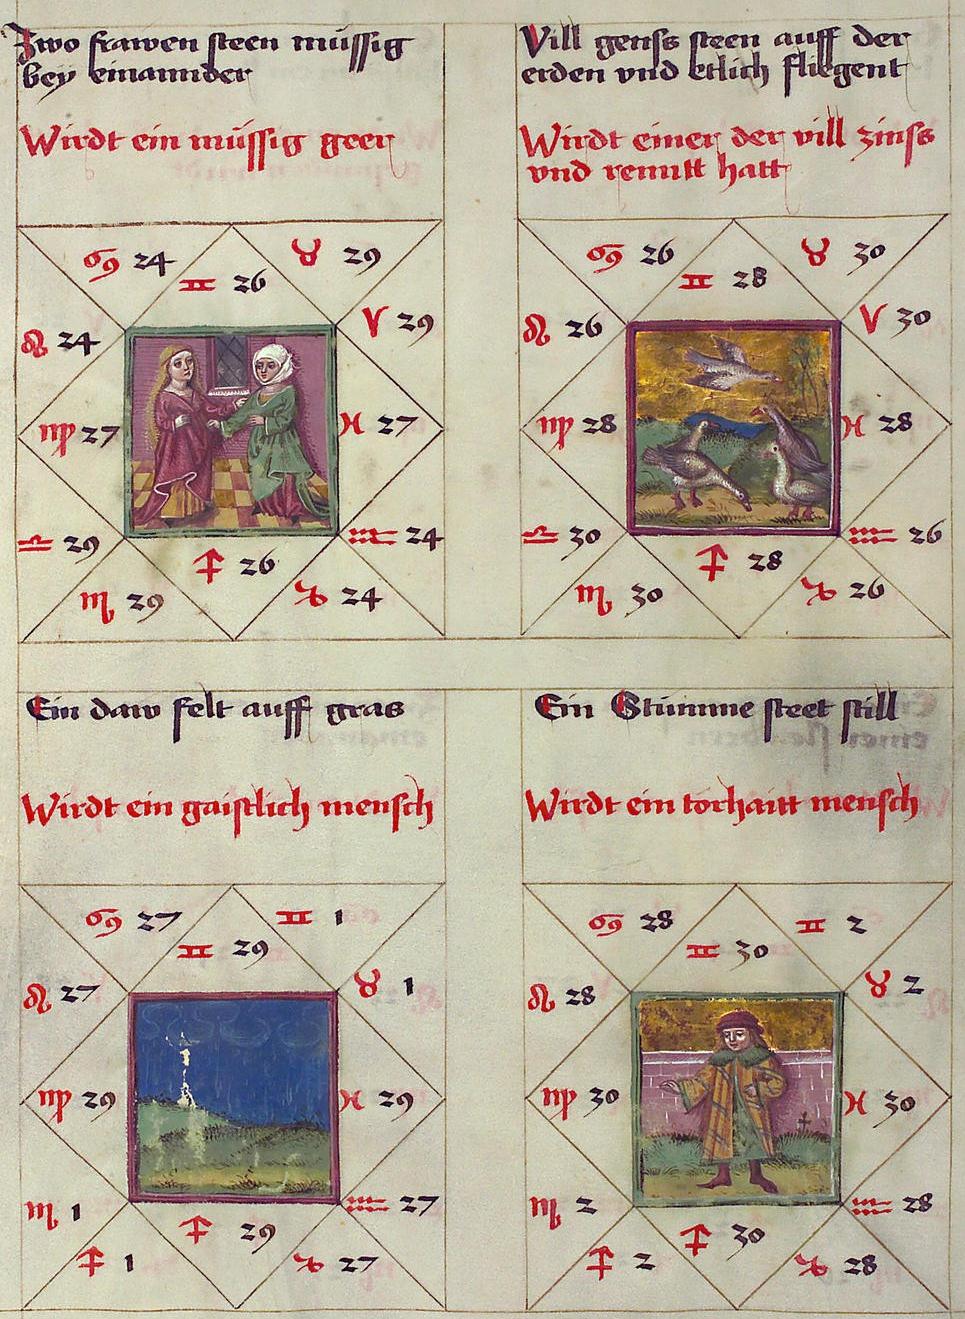 Zwo frawen steen müssig
bey einannder
Wirdt ein müssig geer
♋ 24
♊ 26
♉ 29
♌ 24
♈ 29
♍ 27
♓ 27
♎ 29
♐ 26
♒ 24
♏ 29
♑ 24
Vill genss steen auff der
erden vnd etlich fliegent
Wirdt einer der vill zinss
vnd renntt hatt
♋ 26
♊ 28
♉ 30
♌ 26
♈ 30
♍ 28
♓ 28
♎ 30
♐ 28
♒ 26
♏ 30
♑ 26
Ein daw felt auff gras
Wirdt ein gaistlich mensch
♋ 27
♊ 29
♊ 1
♌ 27
♉ 1
♍ 29
♓ 29
♏ 1
♐ 29
♒ 27
♐ 1
♑ 27
Ein Stümme steet still
Wirdt ein torhaitt mensch
♋ 28
♊ 30
♊ 2
♌ 28
♉ 2
♍ 30
♓ 30
♏ 2
♐ 30
♒ 28
♐ 2
♑ 28